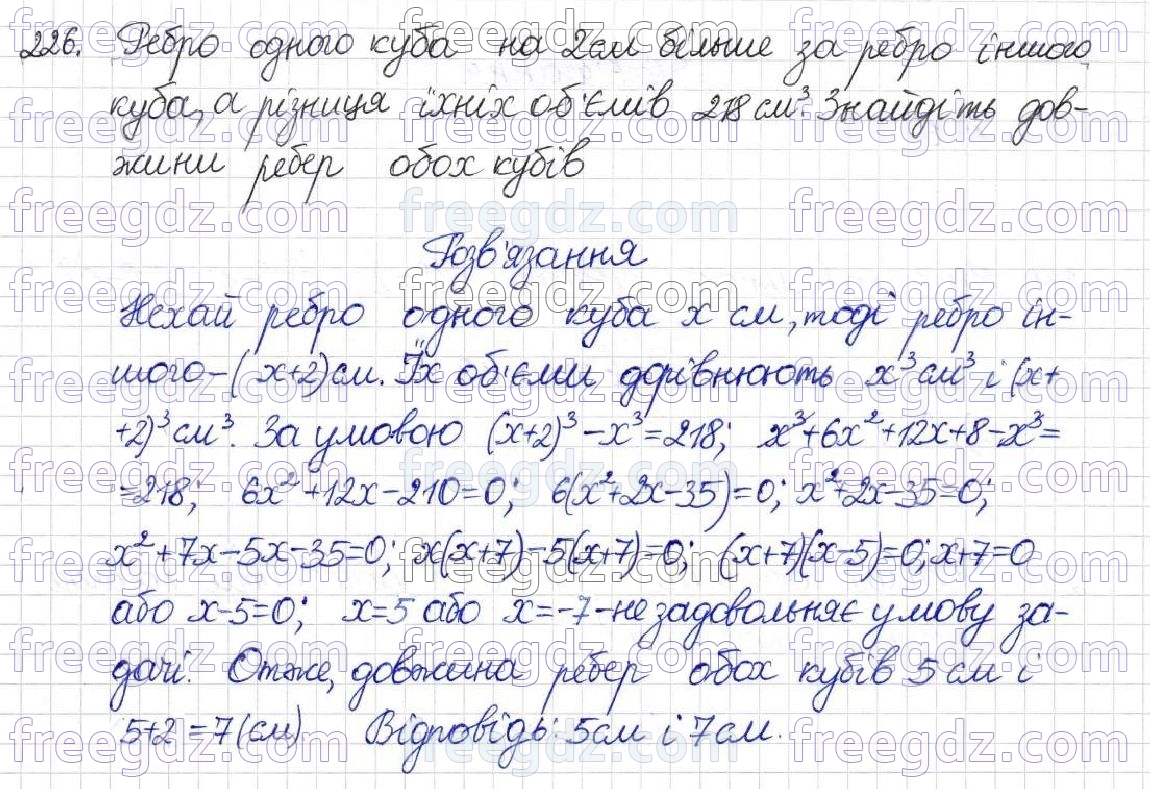 226. Ребро одного куба на 2 см більше за ребро іншого
куба, а різниця їхніх об'ємів 218 см³. Знайдіть дов-
жини ребер обох кубів
Розв'язання
Нехай ребро одного куба x см, тоді ребро ін-
шого – (x+2) см. Їх об'єми дорівнюють x³ см³ і (x+
+2)³ см³. За умовою (x+2)³ – x³ = 218; x³+6x²+12x+8–x³=
=218; 6x²+12x–210=0; 6(x²+2x–35)=0; x²+2x–35=0;
x²+7x–5x–35=0; x(x+7)–5(x+7)=0; (x+7)(x–5)=0; x+7=0
або x–5=0; x=5 або x=–7 – не задовольняє умову за-
дачі. Отже, довжина ребер обох кубів 5 см і
5+2=7 (см). Відповідь: 5 см і 7 см.
freegdz.com